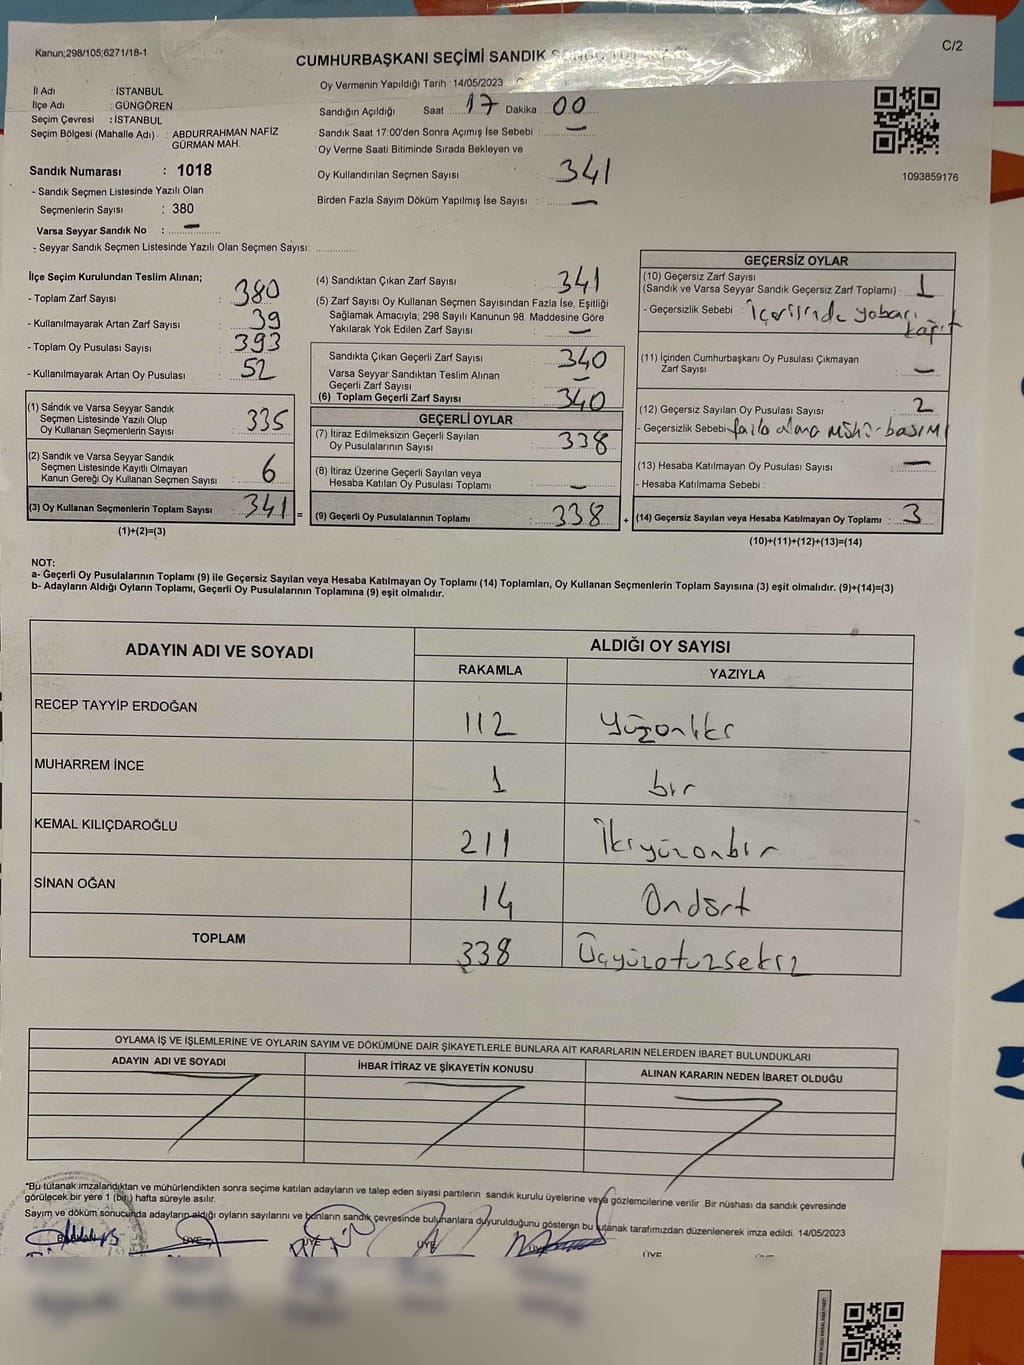 Kanun;298/105;6271/18-1
C/2
CUMHURBAŞKANI SEÇİMİ SANDIK
Oy Vermenin Yapıldığı Tarih : 14/05/2023
İl Adı : İSTANBUL
İlçe Adı : GÜNGÖREN
Seçim Çevresi : İSTANBUL
Seçim Bölgesi (Mahalle Adı) : ABDURRAHMAN NAFİZ
GÜRMAN MAH.
Sandık Numarası : 1018
- Sandık Seçmen Listesinde Yazılı Olan
Seçmenlerin Sayısı : 380
Varsa Seyyar Sandık No : —
- Seyyar Sandık Seçmen Listesinde Yazılı Olan Seçmen Sayısı:
Sandığın Açıldığı Saat : 17 Dakika : 00
Sandık Saat 17:00'den Sonra Açımış İse Sebebi : —
Oy Verme Saati Bitiminde Sırada Bekleyen ve
Oy Kullandırılan Seçmen Sayısı : 341
Birden Fazla Sayım Döküm Yapılmış İse Sayısı : —
1093859176
İlçe Seçim Kurulundan Teslim Alınan;
- Toplam Zarf Sayısı : 380
- Kullanılmayarak Artan Zarf Sayısı : 39
- Toplam Oy Pusulası Sayısı : 393
- Kullanılmayarak Artan Oy Pusulası : 52
(1) Sandık ve Varsa Seyyar Sandık
Seçmen Listesinde Yazılı Olup
Oy Kullanan Seçmenlerin Sayısı : 335
(2) Sandık ve Varsa Seyyar Sandık
Seçmen Listesinde Kayıtlı Olmayan
Kanun Gereği Oy Kullanan Seçmen Sayısı : 6
(3) Oy Kullanan Seçmenlerin Toplam Sayısı : 341 =
(1)+(2)=(3)
(4) Sandıktan Çıkan Zarf Sayısı : 341
(5) Zarf Sayısı Oy Kullanan Seçmen Sayısından Fazla İse, Eşitliği
Sağlamak Amacıyla, 298 Sayılı Kanunun 98. Maddesine Göre
Yakılarak Yok Edilen Zarf Sayısı : —
Sandıkta Çıkan Geçerli Zarf Sayısı : 340
Varsa Seyyar Sandıktan Teslim Alınan
Geçerli Zarf Sayısı : —
(6) Toplam Geçerli Zarf Sayısı : 340
GEÇERLİ OYLAR
(7) İtiraz Edilmeksizin Geçerli Sayılan
Oy Pusulalarının Sayısı : 338
(8) İtiraz Üzerine Geçerli Sayılan veya
Hesaba Katılan Oy Pusulası Toplamı : —
(9) Geçerli Oy Pusulalarının Toplamı : 338 +
GEÇERSİZ OYLAR
(10) Geçersiz Zarf Sayısı
(Sandık ve Varsa Seyyar Sandık Geçersiz Zarf Toplamı) : 1
- Geçersizlik Sebebi : İçerisinde yabacı
kağıt
(11) İçinden Cumhurbaşkanı Oy Pusulası Çıkmayan
Zarf Sayısı : —
(12) Geçersiz Sayılan Oy Pusulası Sayısı : 2
- Geçersizlik Sebebi fazla alana mühür basımı
(13) Hesaba Katılmayan Oy Pusulası Sayısı : —
- Hesaba Katılmama Sebebi :
(14) Geçersiz Sayılan veya Hesaba Katılmayan Oy Toplamı : 3
(10)+(11)+(12)+(13)=(14)
NOT:
a- Geçerli Oy Pusulalarının Toplamı (9) ile Geçersiz Sayılan veya Hesaba Katılmayan Oy Toplamı (14) Toplamları, Oy Kullanan Seçmenlerin Toplam Sayısına (3) eşit olmalıdır. (9)+(14)=(3)
b- Adayların Aldığı Oyların Toplamı, Geçerli Oy Pusulalarının Toplamına (9) eşit olmalıdır.
ADAYIN ADI VE SOYADI
ALDIĞI OY SAYISI
RAKAMLA YAZIYLA
RECEP TAYYİP ERDOĞAN 112 Yüzoniki
MUHARREM İNCE 1 bir
KEMAL KILIÇDAROĞLU 211 İkiyüzonbir
SİNAN OĞAN 14 Ondört
TOPLAM 338 Üçyüzotuzsekiz
OYLAMA İŞ VE İŞLEMLERİNE VE OYLARIN SAYIM VE DÖKÜMÜNE DAİR ŞİKAYETLERLE BUNLARA AİT KARARLARIN NELERDEN İBARET BULUNDUKLARI
ADAYIN ADI VE SOYADI İHBAR İTİRAZ VE ŞİKAYETİN KONUSU ALINAN KARARIN NEDEN İBARET OLDUĞU
*Bu tutanak imzalandıktan ve mühürlendikten sonra seçime katılan adayların ve talep eden siyasi partilerin sandık kurulu üyelerine veya gözlemcilerine verilir. Bir nüshası da sandık çevresinde
görülecek bir yere 1 (bir) hafta süreyle asılır.
Sayım ve döküm sonucunda adayların aldığı oyların sayılarını ve bunların sandık çevresinde bulunanlara duyurulduğunu gösteren bu tutanak tarafımızdan düzenlenerek imza edildi. 14/05/2023
BAŞKAN ÜYE ÜYE ÜYE ÜYE ÜYE